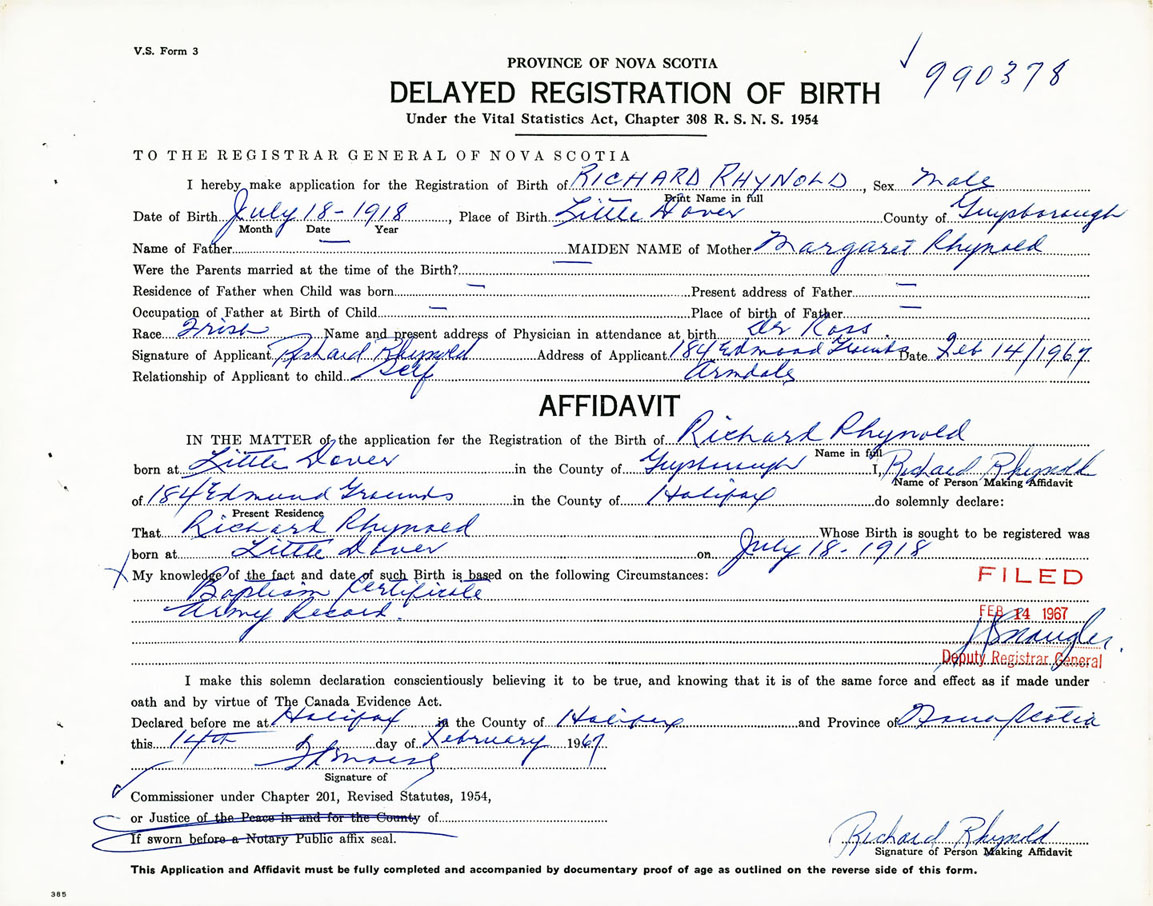 V.S. Form 3
990378
PROVINCE OF NOVA SCOTIA
DELAYED REGISTRATION OF BIRTH
Under the Vital Statistics Act, Chapter 308 R. S. N. S. 1954
TO THE REGISTRAR GENERAL OF NOVA SCOTIA
I hereby make application for the Registration of Birth of RICHARD RHYNOLD, Sex Male
Print Name in full
Date of Birth July 18-1918, Place of Birth Little Dover County of Guysborough
Month Date Year
Name of Father — MAIDEN NAME of Mother Margaret Rhynold
Were the Parents married at the time of the Birth? —
Residence of Father when Child was born — Present address of Father —
Occupation of Father at Birth of Child — Place of birth of Father —
Race Irish Name and present address of Physician in attendance at birth Dr Ross.
Signature of Applicant Richard Rhynold Address of Applicant 184 Edmond Grounds Date Feb 14/1967
Relationship of Applicant to child Self Armdale
AFFIDAVIT
IN THE MATTER of the application for the Registration of the Birth of Richard Rhynold
Name in full
born at Little Dover in the County of Guysborough I, Richard Rhynold
Name of Person Making Affidavit
of 184 Edmund Grounds in the County of Halifax do solemnly declare:
Present Residence
That Richard Rhynold Whose Birth is sought to be registered was
born at Little Dover on July 18-1918
x My knowledge of the fact and date of such Birth is based on the following Circumstances:
Baptism Certificate
Army Record.
FILED
FEB 14 1967
Deputy Registrar General
I make this solemn declaration conscientiously believing it to be true, and knowing that it is of the same force and effect as if made under
oath and by virtue of The Canada Evidence Act.
Declared before me at Halifax in the County of Halifax and Province of Nova Scotia
this 14th day of February 1967
Signature of
Commissioner under Chapter 201, Revised Statutes, 1954,
or Justice of the Peace in and for the County of
If sworn before a Notary Public affix seal.
Richard Rhynold
Signature of Person Making Affidavit
This Application and Affidavit must be fully completed and accompanied by documentary proof of age as outlined on the reverse side of this form.
385